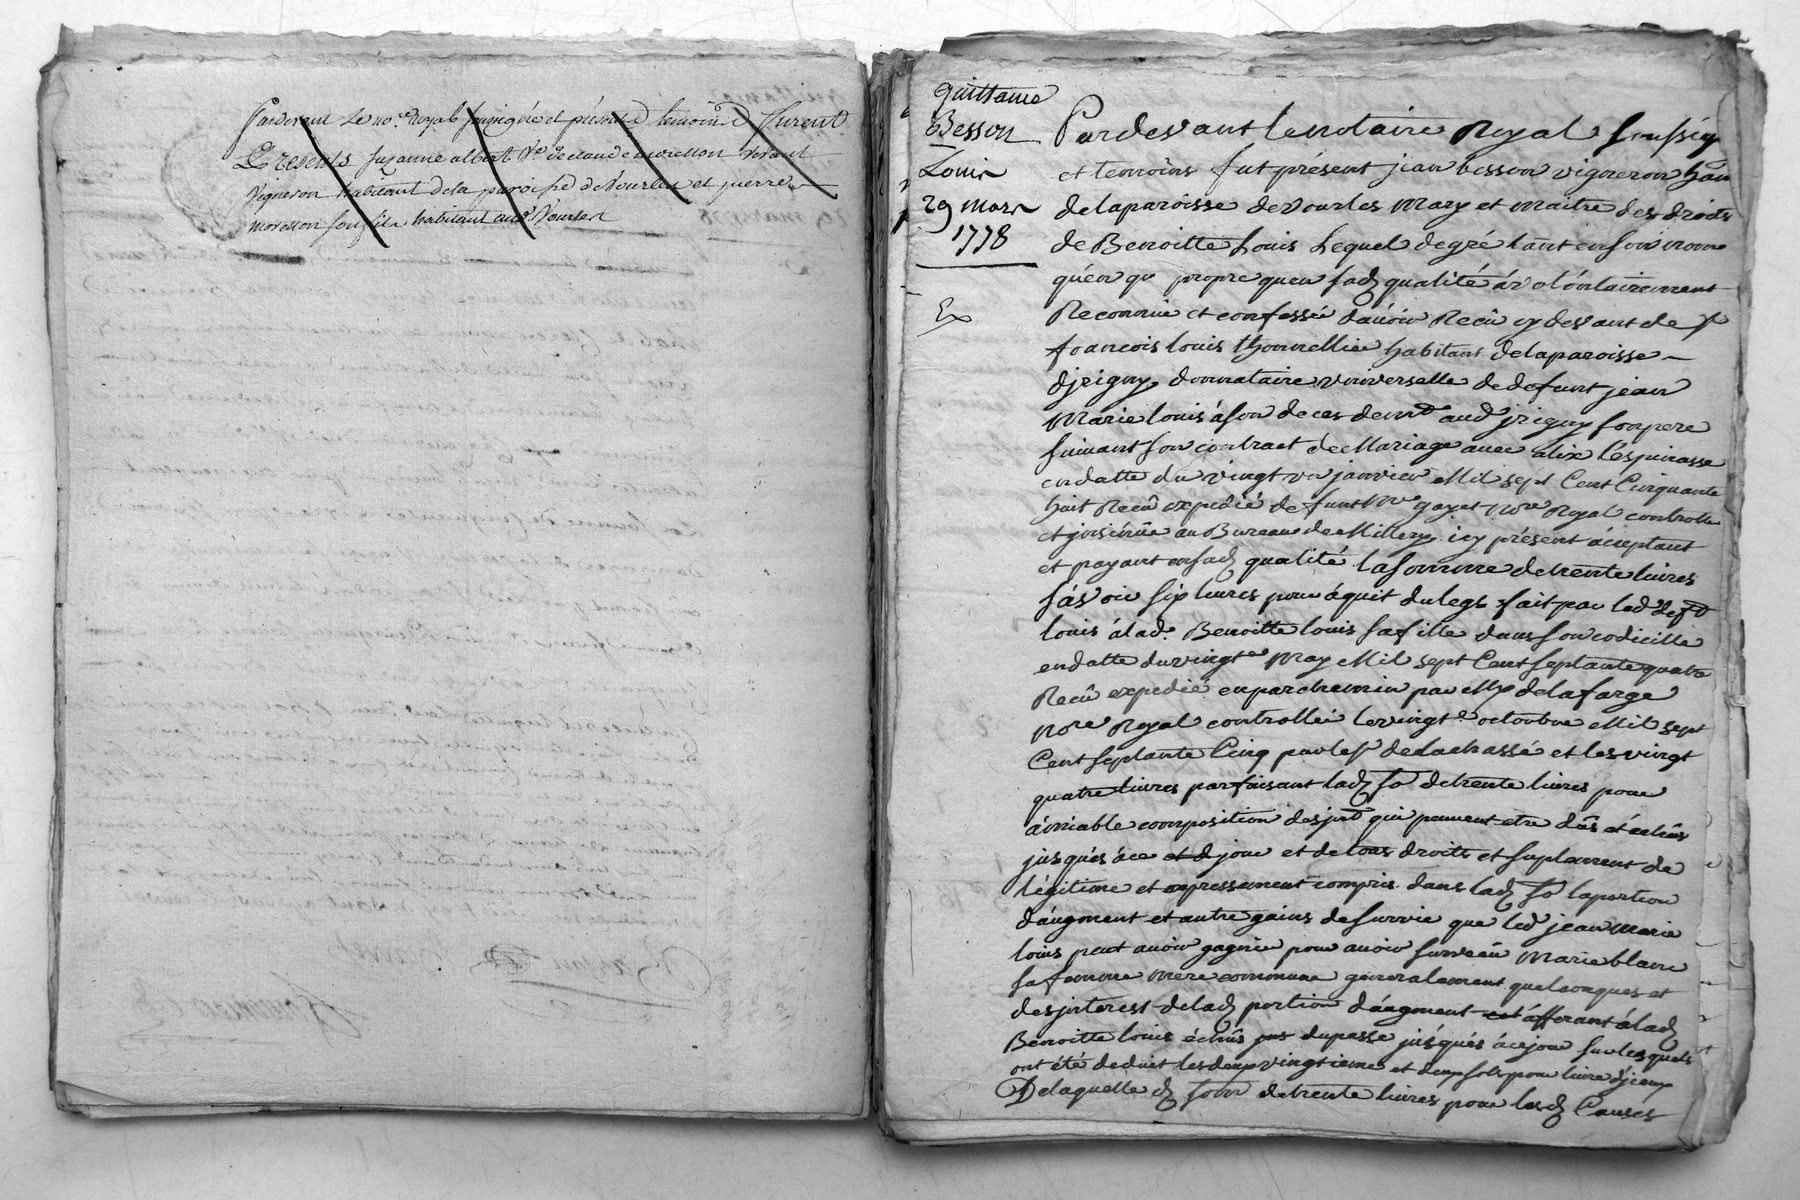 Pardevant le no.re Royal soussigné et présents temoins furent
Presents suzanne albert v.e de claude morellon vivant
vigneron habitant de la paroisse de Vourles et pierre
morellon son fils habitant aud.t Vourles
quittance
Besson
Louis
29 mars
1778
Ex
Pardevant le notaire Royal soussig
et temoins fut présent jean besson vigneron hab
de la paroisse de vourles mary et maitre des droits
de Benoitte Louis Lequel de gré tant en son nom
propre qu'en sad. qualité a volontairement
Reconnu et confessé d'avoir Reçû cy devant de s.r
francois louis thonnellier habitant de la paroisse
d'jrigny donnataire universelle de defunt jean
Marie louis à son deces demt aud. jrigny son pere
suivant son contract de Mariage avec alix l'espinasse
en datte du vingt un janvier Mil sept Cent Cinquante
huit Reçû expedié defunt Me gayet no.re Royal controllé
et jnsinüé au Bureau de Millery icy présent acceptant
et payant en sad. qualité la somme de trente livres
sàvoir six livres pour àquit du legs fait par led. deft
louis à lad. Benoitte louis sa fille dans son codicille
en datte du vingt.e May Mil sept Cent septante quatre
Reçû expedié en parchemin par Me delafarge
no.re Royal controllé le vingt.e octoubre Mil sept
Cent septante Cinq par le s.r delachassé et les vingt
quatre livres parfaisant lad. so. de trente livres pour
àmiable composition des jnt qui peuvent etre dûs et échûs
jusqués à ce et d jour et de tous droits et suplement de
légitime et expressement compris dans lad. so. la portion
d'augment et autre gains de survie que led. jean marie
louis peut avoir gagnée pour avoir survécû Marie blanc
sa femme mere commune generalement quelconques et
des jnterest de lad. portion d'augment afferant à lad.
Benoitte louis échûs du passé jusqués à ce jour sur lesquels
ont été deduit les deux vingtieme et deux sols pour livre d'jceux
De laquelle d. somme de trente livres pour lesd. Causes